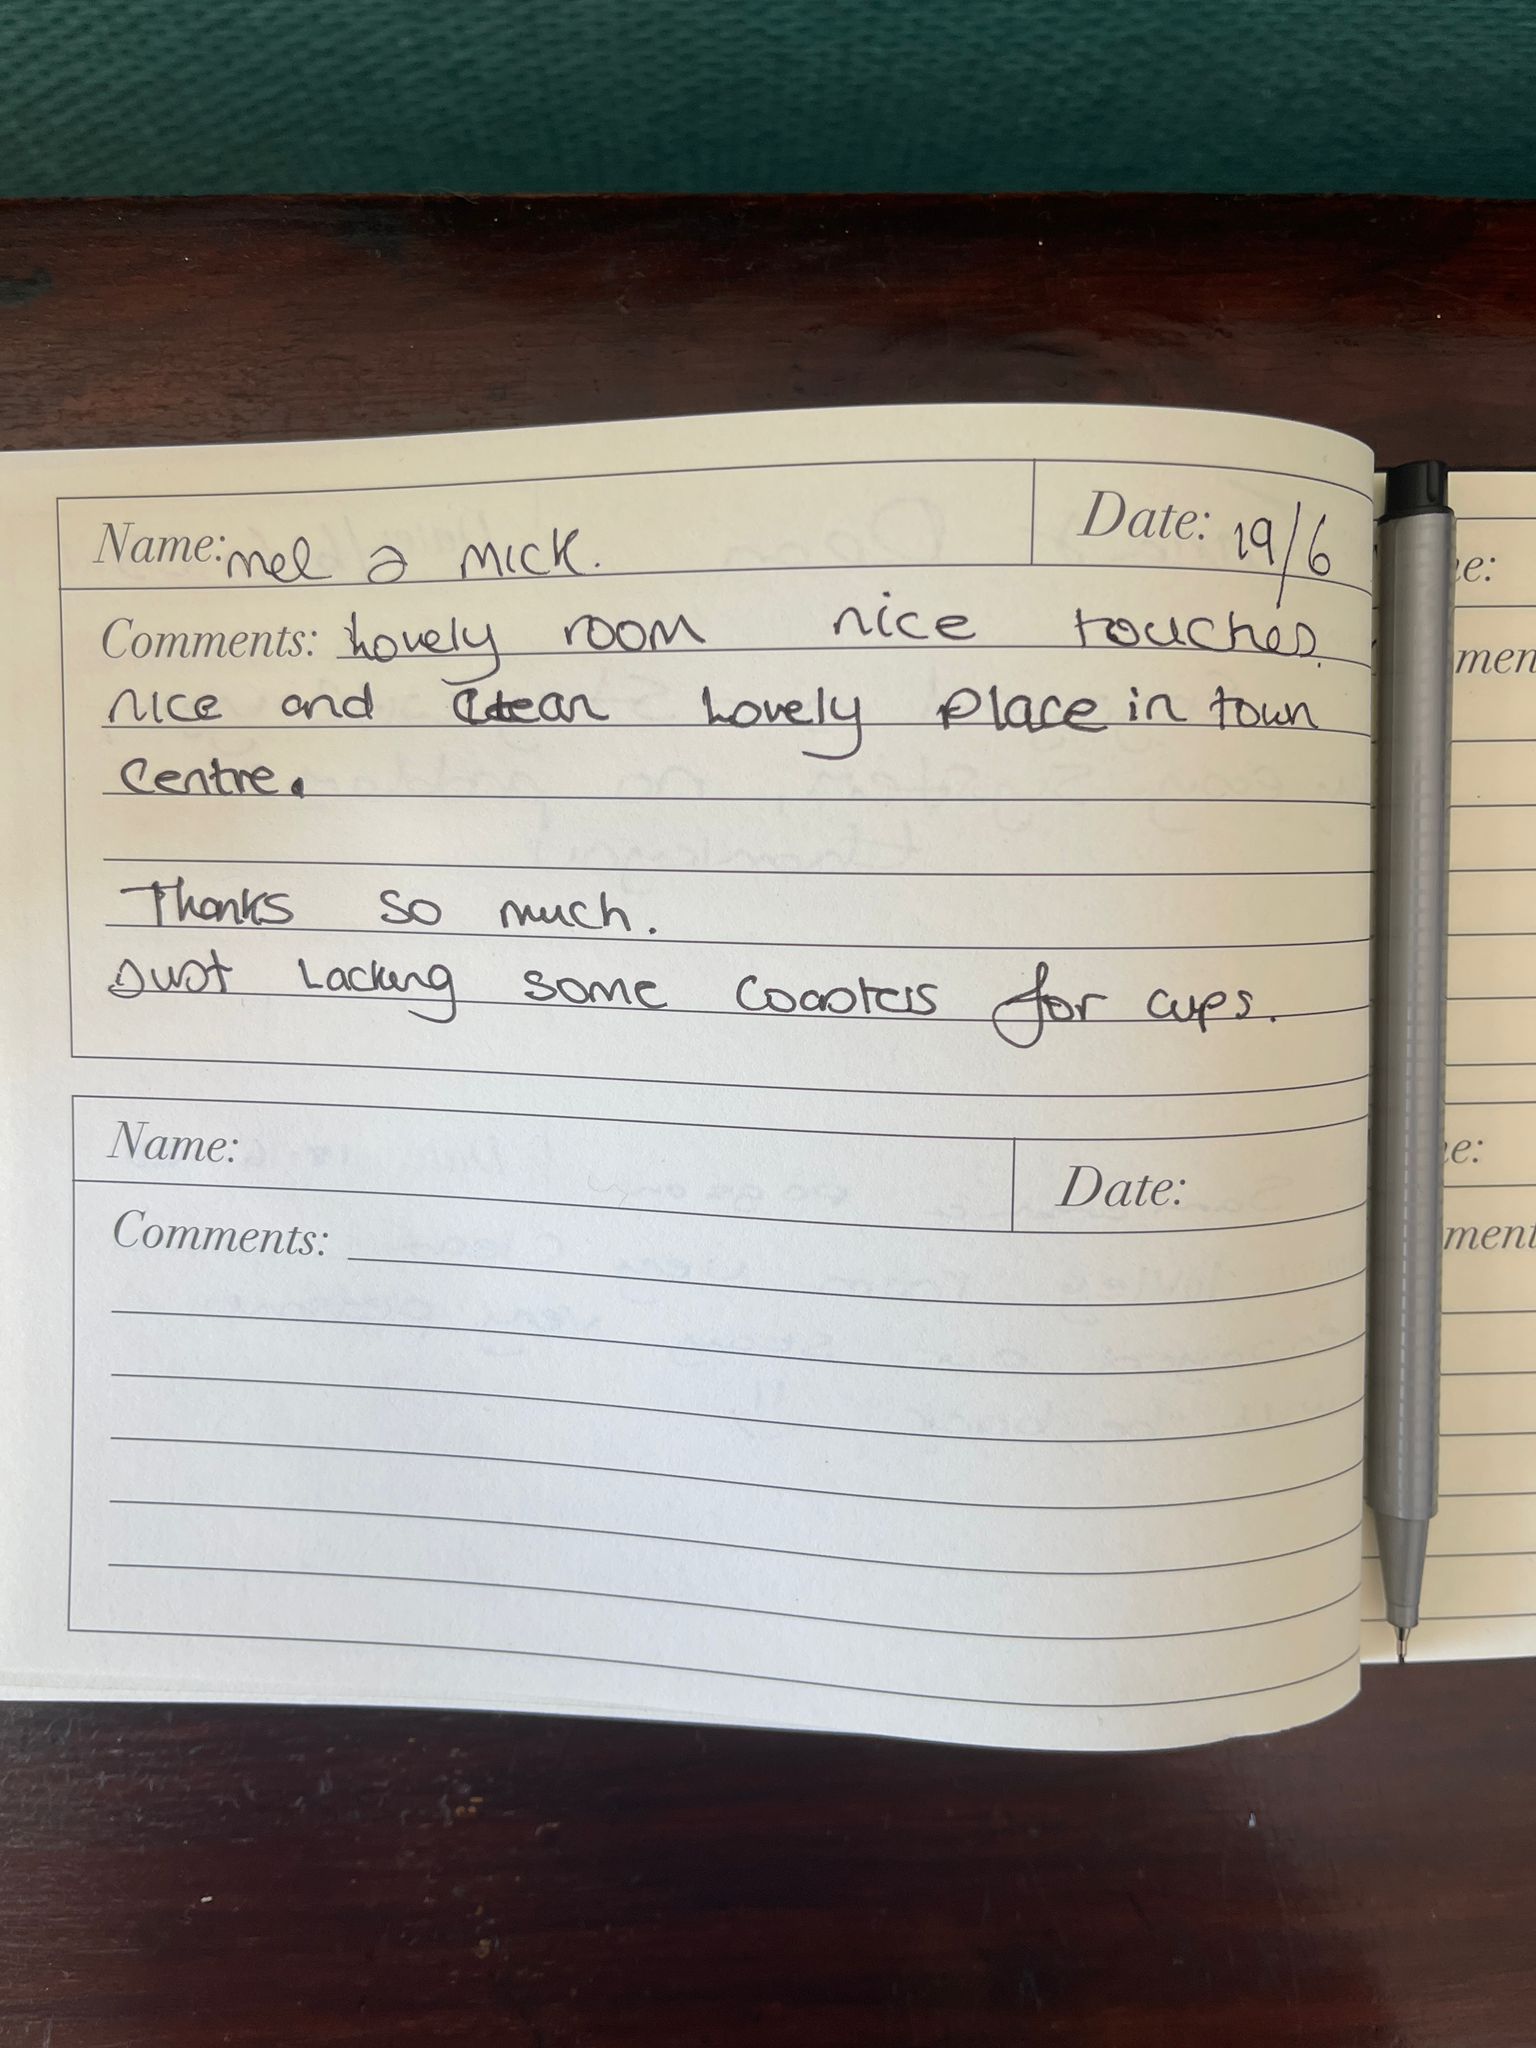 Name: mel & mick. Date: 19/6
Comments: Lovely room nice touches.
nice and clean Lovely place in town
centre.
Thanks so much.
Just Lacking some coasters for cups.
Name: Date:
Comments:
e:
men
e:
ment